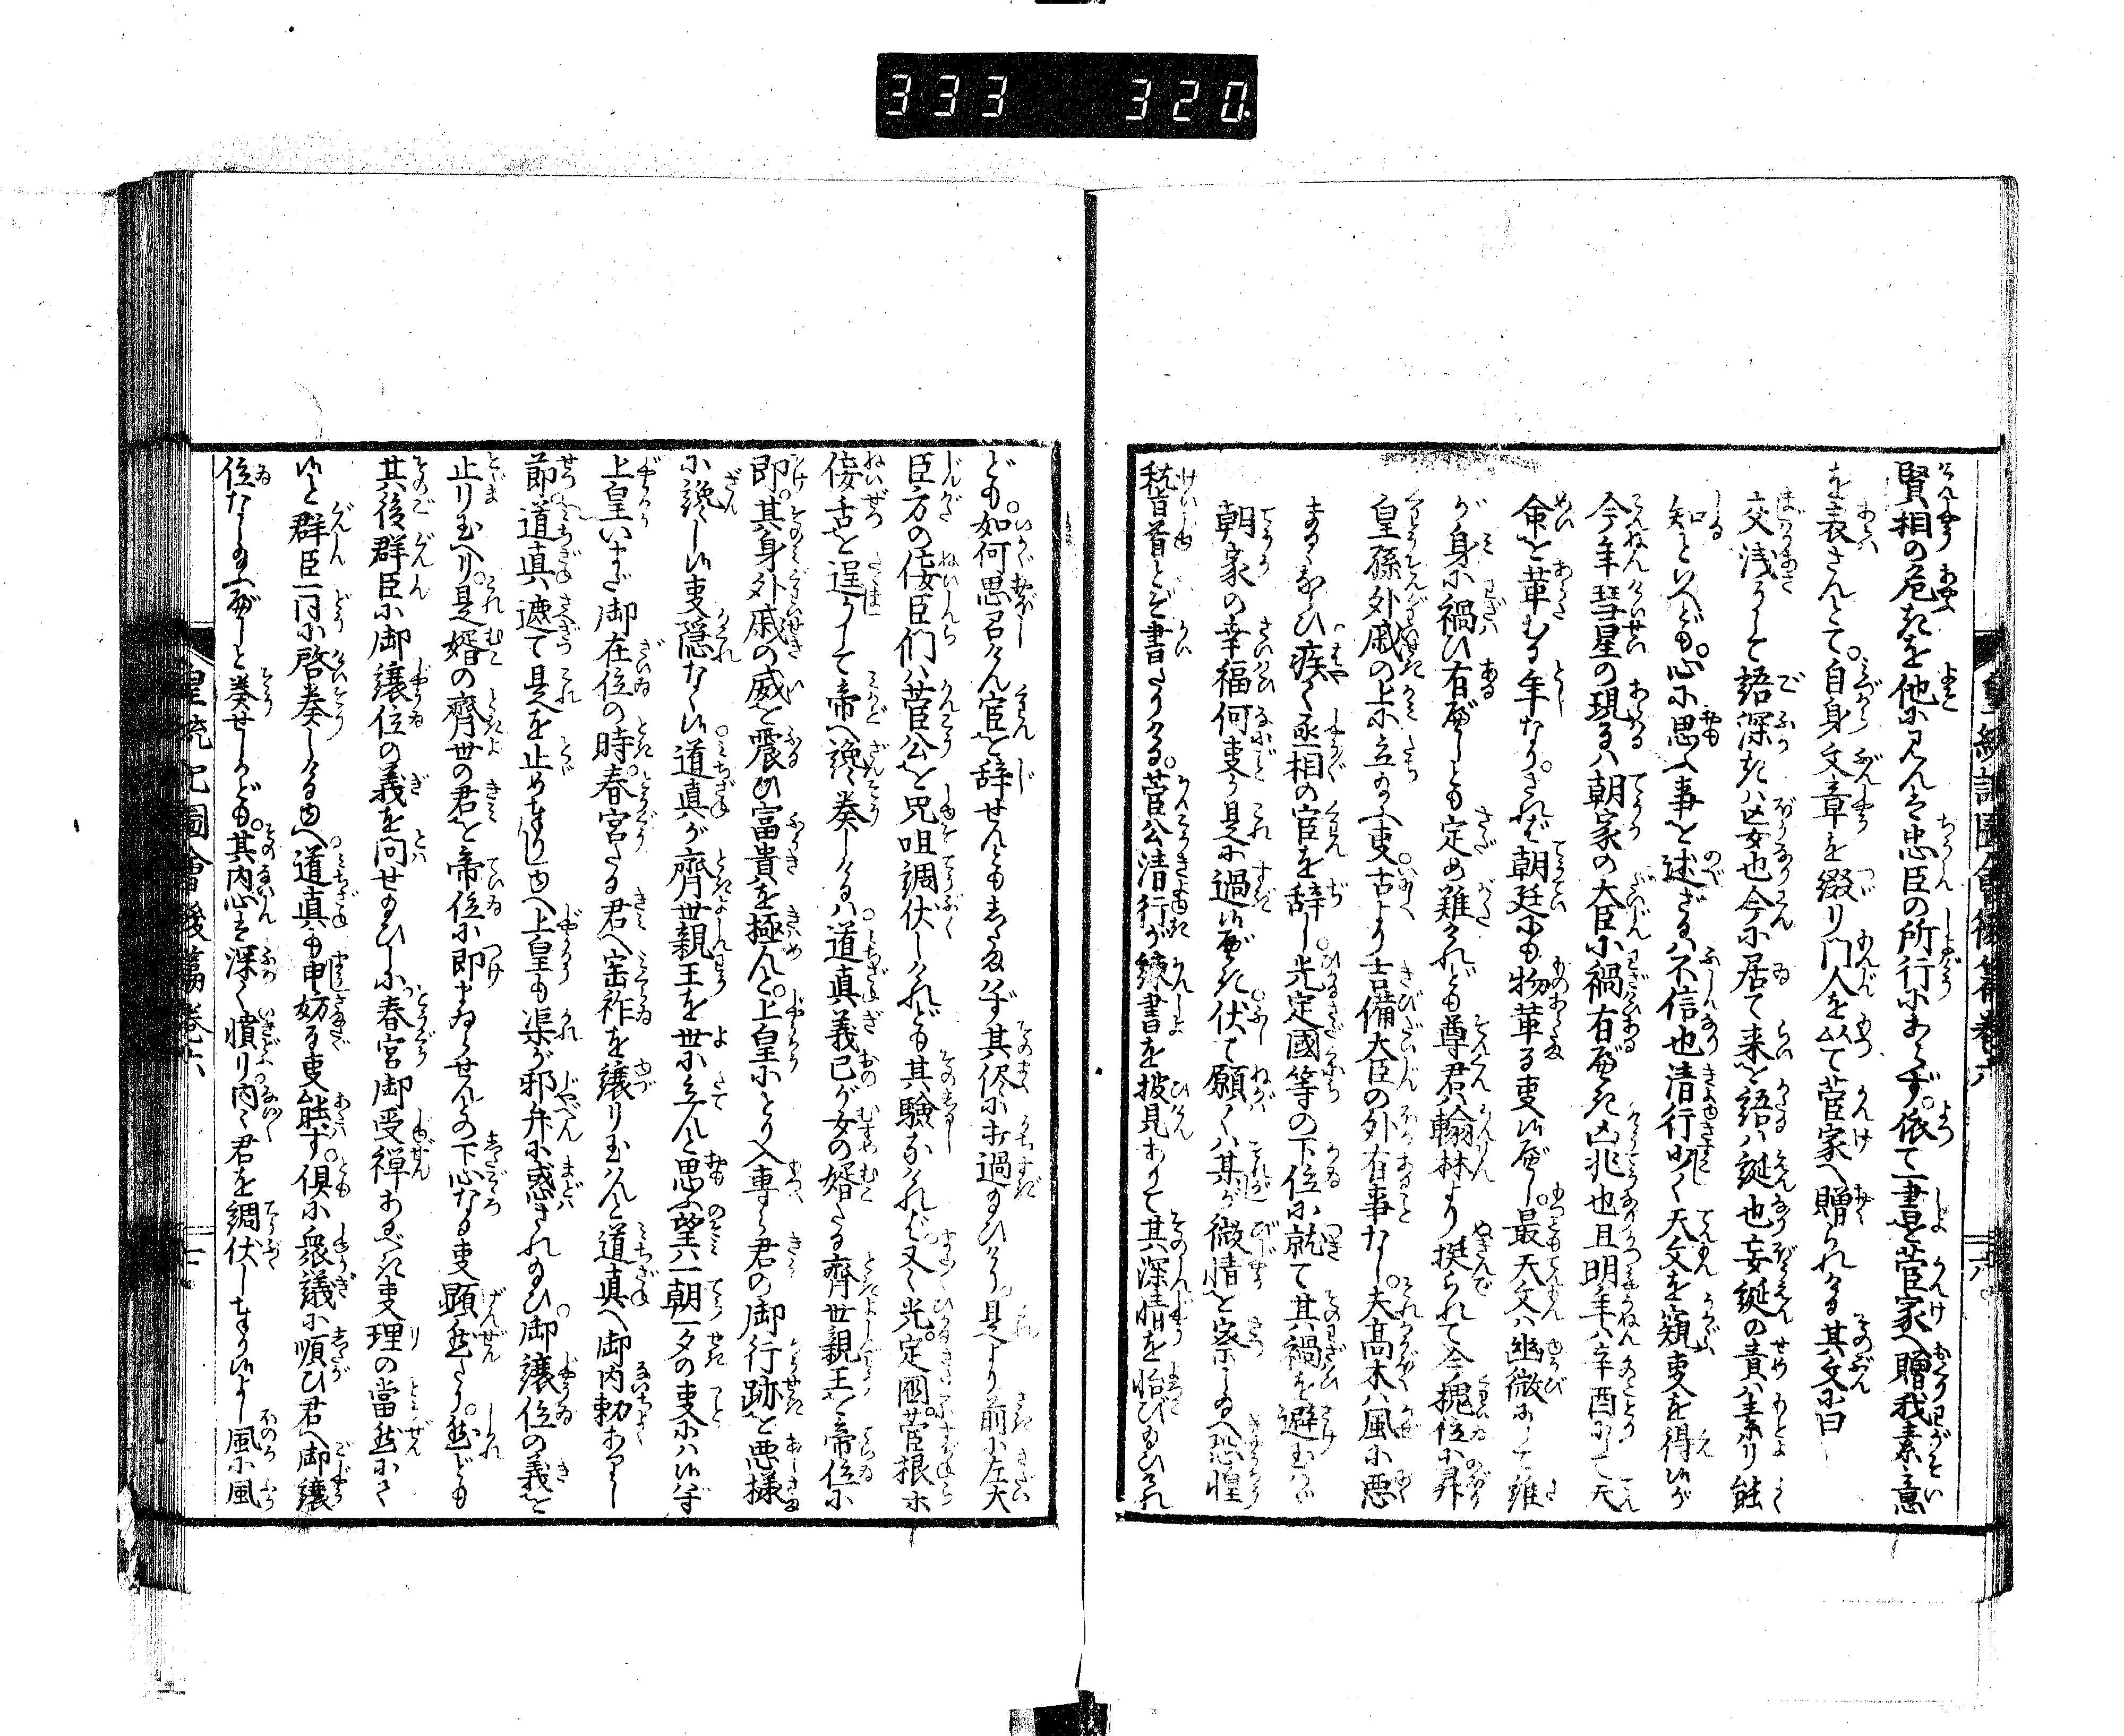 333 320
賢相の危きを他に見んは忠臣の所行にあらず。依て一書を菅家へ贈我素意
を表さんとて。自身文章を綴り门人を以て菅家へ贈られける其文に曰
交浅うして語深きハ凶妄也今に居て来を語ハ誕也妄誕の責ハ素り能
知といへども。心に思ふ事を述ざるハ不信也清行助く天文を窺事を得いが
今年彗星の現るハ朝家の大臣に禍有べき凶兆也且明年ハ辛酉にして天
命を革むる年なり。されば朝廷にも物革る事いべし。最天文ハ幽微にして誰
が身に禍ひ有べしとも定め難けれども尊君翰林より挺られて今槐位に昇り
皇孫外戚の上に立給ふ事。古より吉備大臣の外有事なし。夫高木ハ風に悪
まるゝならひ疾く丞相の官を辞し。光定國等の下位に就て其禍を避玉はゞ
朝家の幸福何事か是に過いべき。伏て願くハ某が微情を察し給へ恐惶
稽首とぞ書たりける。菅公清行が諫書を披見ありて其深情を怡び給ひけれ
ども。如何思召けん官を辞せんともし給はず其侭に打過給ひけり。是より前に左大
臣方の侫臣们ハ菅公を咒咀調伏しけれども其驗なければ又々光。定國。菅根ホ
侫舌を逞うして帝へ讒奏しけるハ。道真義己が女の婿たる齊世親王を帝位に
即。其身外戚の威を震ひ富貴を極んと。上皇にとり入専ら君の御行跡を悪様
に讒しい事隠なくい。道真が齊世親王を世に立んと思ふ望ハ一朝一夕の事にハいはず
上皇いまだ御在位の時。春宮たる君へ宝祚を譲り玉はんと道真へ御内勅ありし
節。道真遮て是を止め奉りしゆへ上皇も渠が邪弁に惑され給ひ。御譲位の義を
止り玉へり。是婿の齊世の君を帝位に即まゐらせんの下心なる事顕然たり。然ども
其後群臣に御譲位の義を问せ給ひしに春宮御受禅あるべき事理の當然にさ
いと群臣一同に啓奏しけるゆへ。道真も申妨る事能ハず。倶に衆議に順ひ君へ御譲
位なし給ふべしと奏せしかども。其内心は深く憤り内々君を調伏し奉りいよし風に風
皇統記圖會後篇巻六